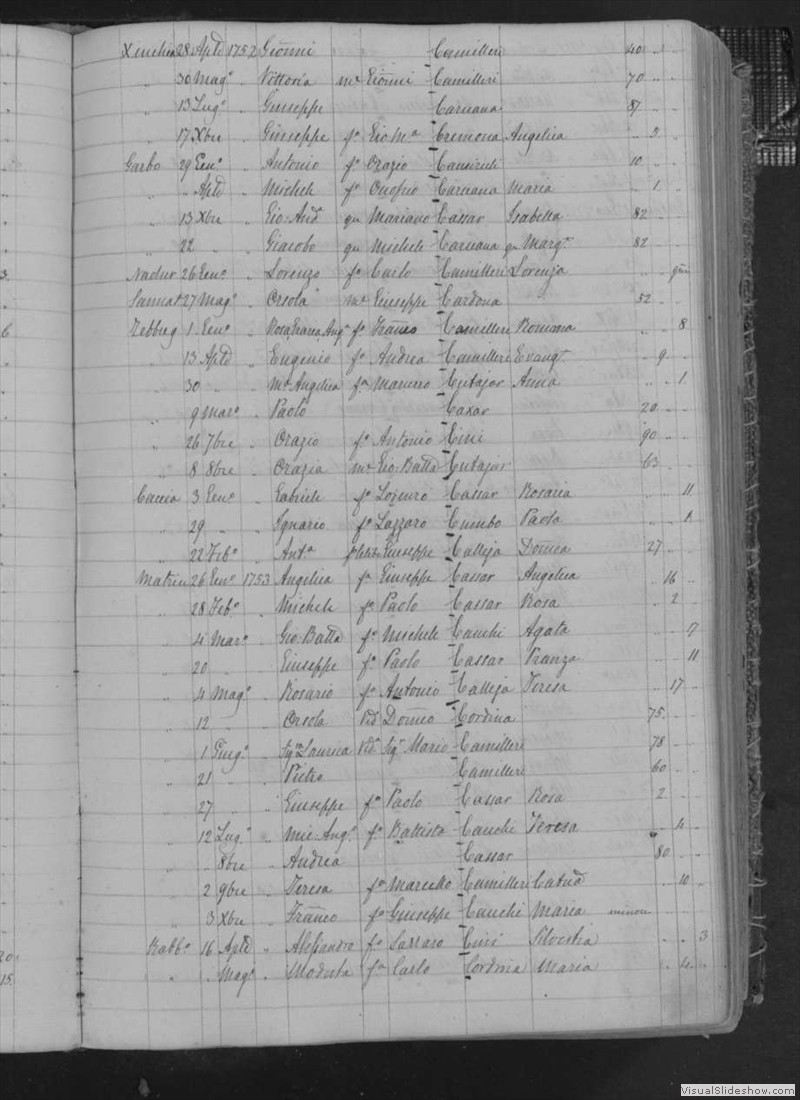 Xeuchia 28 Aple 1752 Gionni Camilleri 40 " "
" 30 Mago " Vittoria me Gionni Camilleri 70 " "
" 13 Lugo " Giuseppe Caruana 87 " "
" 17 Xbre " Giuseppe fo Gio Ma Cremona Angelica " 3 "
Garbo 29 Geno " Antonio fo Orazio 10 " "
" " Aple " Michele fo Onofrio Caruana Maria " 1
" 13 Xbre " Gio: Anda qu Mariano Cassar Isabella 82 " "
" 22 " Giacobo qu Michele Caruana qu Marga 82 " "
Nadur 26 Geno " Lorenzo fo Carlo Camilleri Lorenza " "
Sannat 27 Mago " Orsola me Giuseppe Cardona 32 " "
Zebbug 1 Geno " Rosa, Grazia, Anga fa Franco Camilleri Romana " " 8
" 13 Aple " Eugenio fo Andrea Camilleri Evanga " 9 "
" 30 " Ma Angelica fa Cutajar Anna " " 1
" 9 Maro " Paolo Caxar 20 " "
" 26 7bre " Orazio fo Antonio Cini 90 " "
" 8 8bre " Orazia me Gio: Batta Cutajar 63 " "
Caccia 3 Geno " Gabriele fo Lorenzo Cassar Rosaria " " 11
" 29 " " Ignazio fo Lazzaro Cumbo Paola " "
" 22 Febo " Anto Giuseppe Calleja Domca 27 " "
Matrice 26 Geno 1753 Angelica fa Giuseppe Cassar Angelica " 16 "
" 28 Febo " Michele fo Paolo Cassar Rosa " 2 "
" 4 Maro " Gio: Batta fo Michele Cauchi Agata " " 7
" 20 " " Giuseppe fo Paolo Cassar Franza " " 11
" 4 Mago " Rosario fo Antonio Calleja Teresa " 17 "
" 12 " " Orsola Vida Domco Cordina 75 " "
" 1 Giugo " Siga Laurica Vida Sigr Mario Camilleri 78 " "
" 21 " " Pietro Camilleri 60 " "
" 27 " " Giuseppe fo Paolo Cassar Rosa 2 " "
" 12 Lugo " Mic: Ango fo Battista Cauchi Teresa " 4 "
" " 8bre " Andrea Cassar 80 " "
" 2 9bre " Teresa fa Marcello Camilleri Catna " 10 "
" 3 Xbre " Franco fo Giuseppe Cauchi Maria
Rabbo 16 Aple " Alessandro fo Lazzaro Cini Silvestra " " 3
" " Mago " Modesta fa Carlo Cordina Maria " 4 "
3
6
20
15
VisualSlideshow.com